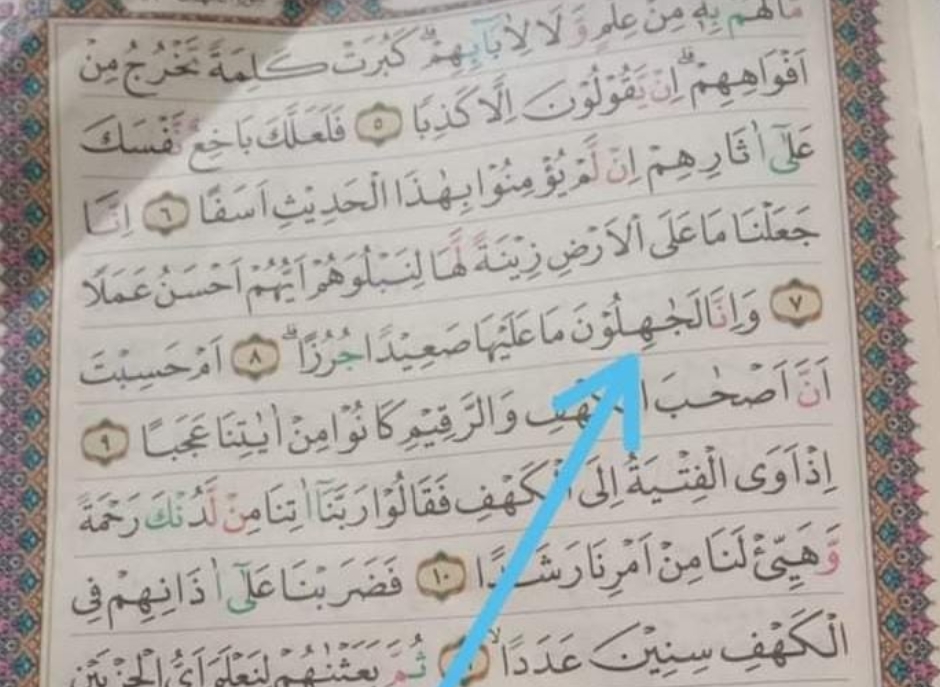 مَا لَهُمْ بِهٖ مِنْ عِلْمٍ وَّلَا لِاٰبَآئِهِمْۗ كَبُرَتْ كَلِمَةً تَخْرُجُ مِنْ
اَفْوَاهِهِمْۗ اِنْ يَّقُوْلُوْنَ اِلَّا كَذِبًا ٥ فَلَعَلَّكَ بَاخِعٌ نَّفْسَكَ
عَلٰٓى اٰثَارِهِمْ اِنْ لَّمْ يُؤْمِنُوْا بِهٰذَا الْحَدِيْثِ اَسَفًا ٦ اِنَّا
جَعَلْنَا مَا عَلَى الْاَرْضِ زِيْنَةً لَّهَا لِنَبْلُوَهُمْ اَيُّهُمْ اَحْسَنُ عَمَلًا
٧ وَاِنَّا لَجٰهِلُوْنَ مَا عَلَيْهَا صَعِيْدًا جُرُزًاۗ ٨ اَمْ حَسِبْتَ
اَنَّ اَصْحٰبَ الْكَهْفِ وَالرَّقِيْمِ كَانُوْا مِنْ اٰيٰتِنَا عَجَبًا ٩
اِذْ اَوَى الْفِتْيَةُ اِلَى الْكَهْفِ فَقَالُوْا رَبَّنَآ اٰتِنَا مِنْ لَّدُنْكَ رَحْمَةً
وَّهَيِّئْ لَنَا مِنْ اَمْرِنَا رَشَدًا ١٠ فَضَرَبْنَا عَلٰٓى اٰذَانِهِمْ فِى
الْكَهْفِ سِنِيْنَ عَدَدًاۙ ثُمَّ بَعَثْنٰهُمْ لِنَعْلَمَ اَيُّ الْحِزْبَيْنِ